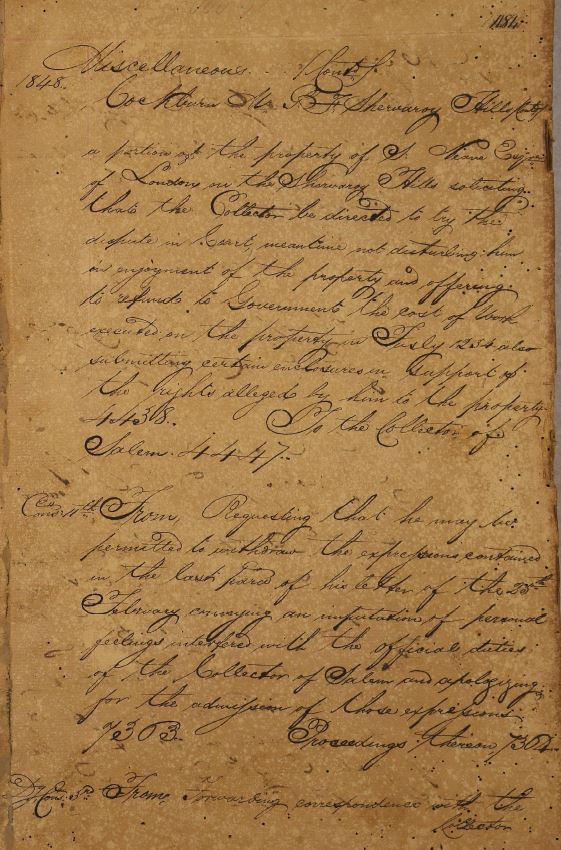 484
Miscellaneous Contd.
1848.
Cockburn M. G. F. Shervaroy Hills
a portion of the property of S. Neave Esqre
of London on the Shervaroy Hills soliciting
that the Collector be directed to try the
dispute in Court, meantime not disturbing him
in enjoyment of the property and offering
to refund to Government the cost of Work
executed on the property in Fusly 1254 also
submitting certain enclosures in support of
the rights alleged by him to the property
4438. To the Collector of
Salem. 4447.
Cons. 11th From, Requesting that he may be
permitted to withdraw the expressions contained
in the last para of his letter of the 25th
February conveying an imputation of personal
feelings interfered with the official duties
of the Collector of Salem and apologizing
for the admission of those expressions
7363. Proceedings thereon 7364.
Dy Cons. 3rd From, Forwarding correspondence with the
Collector